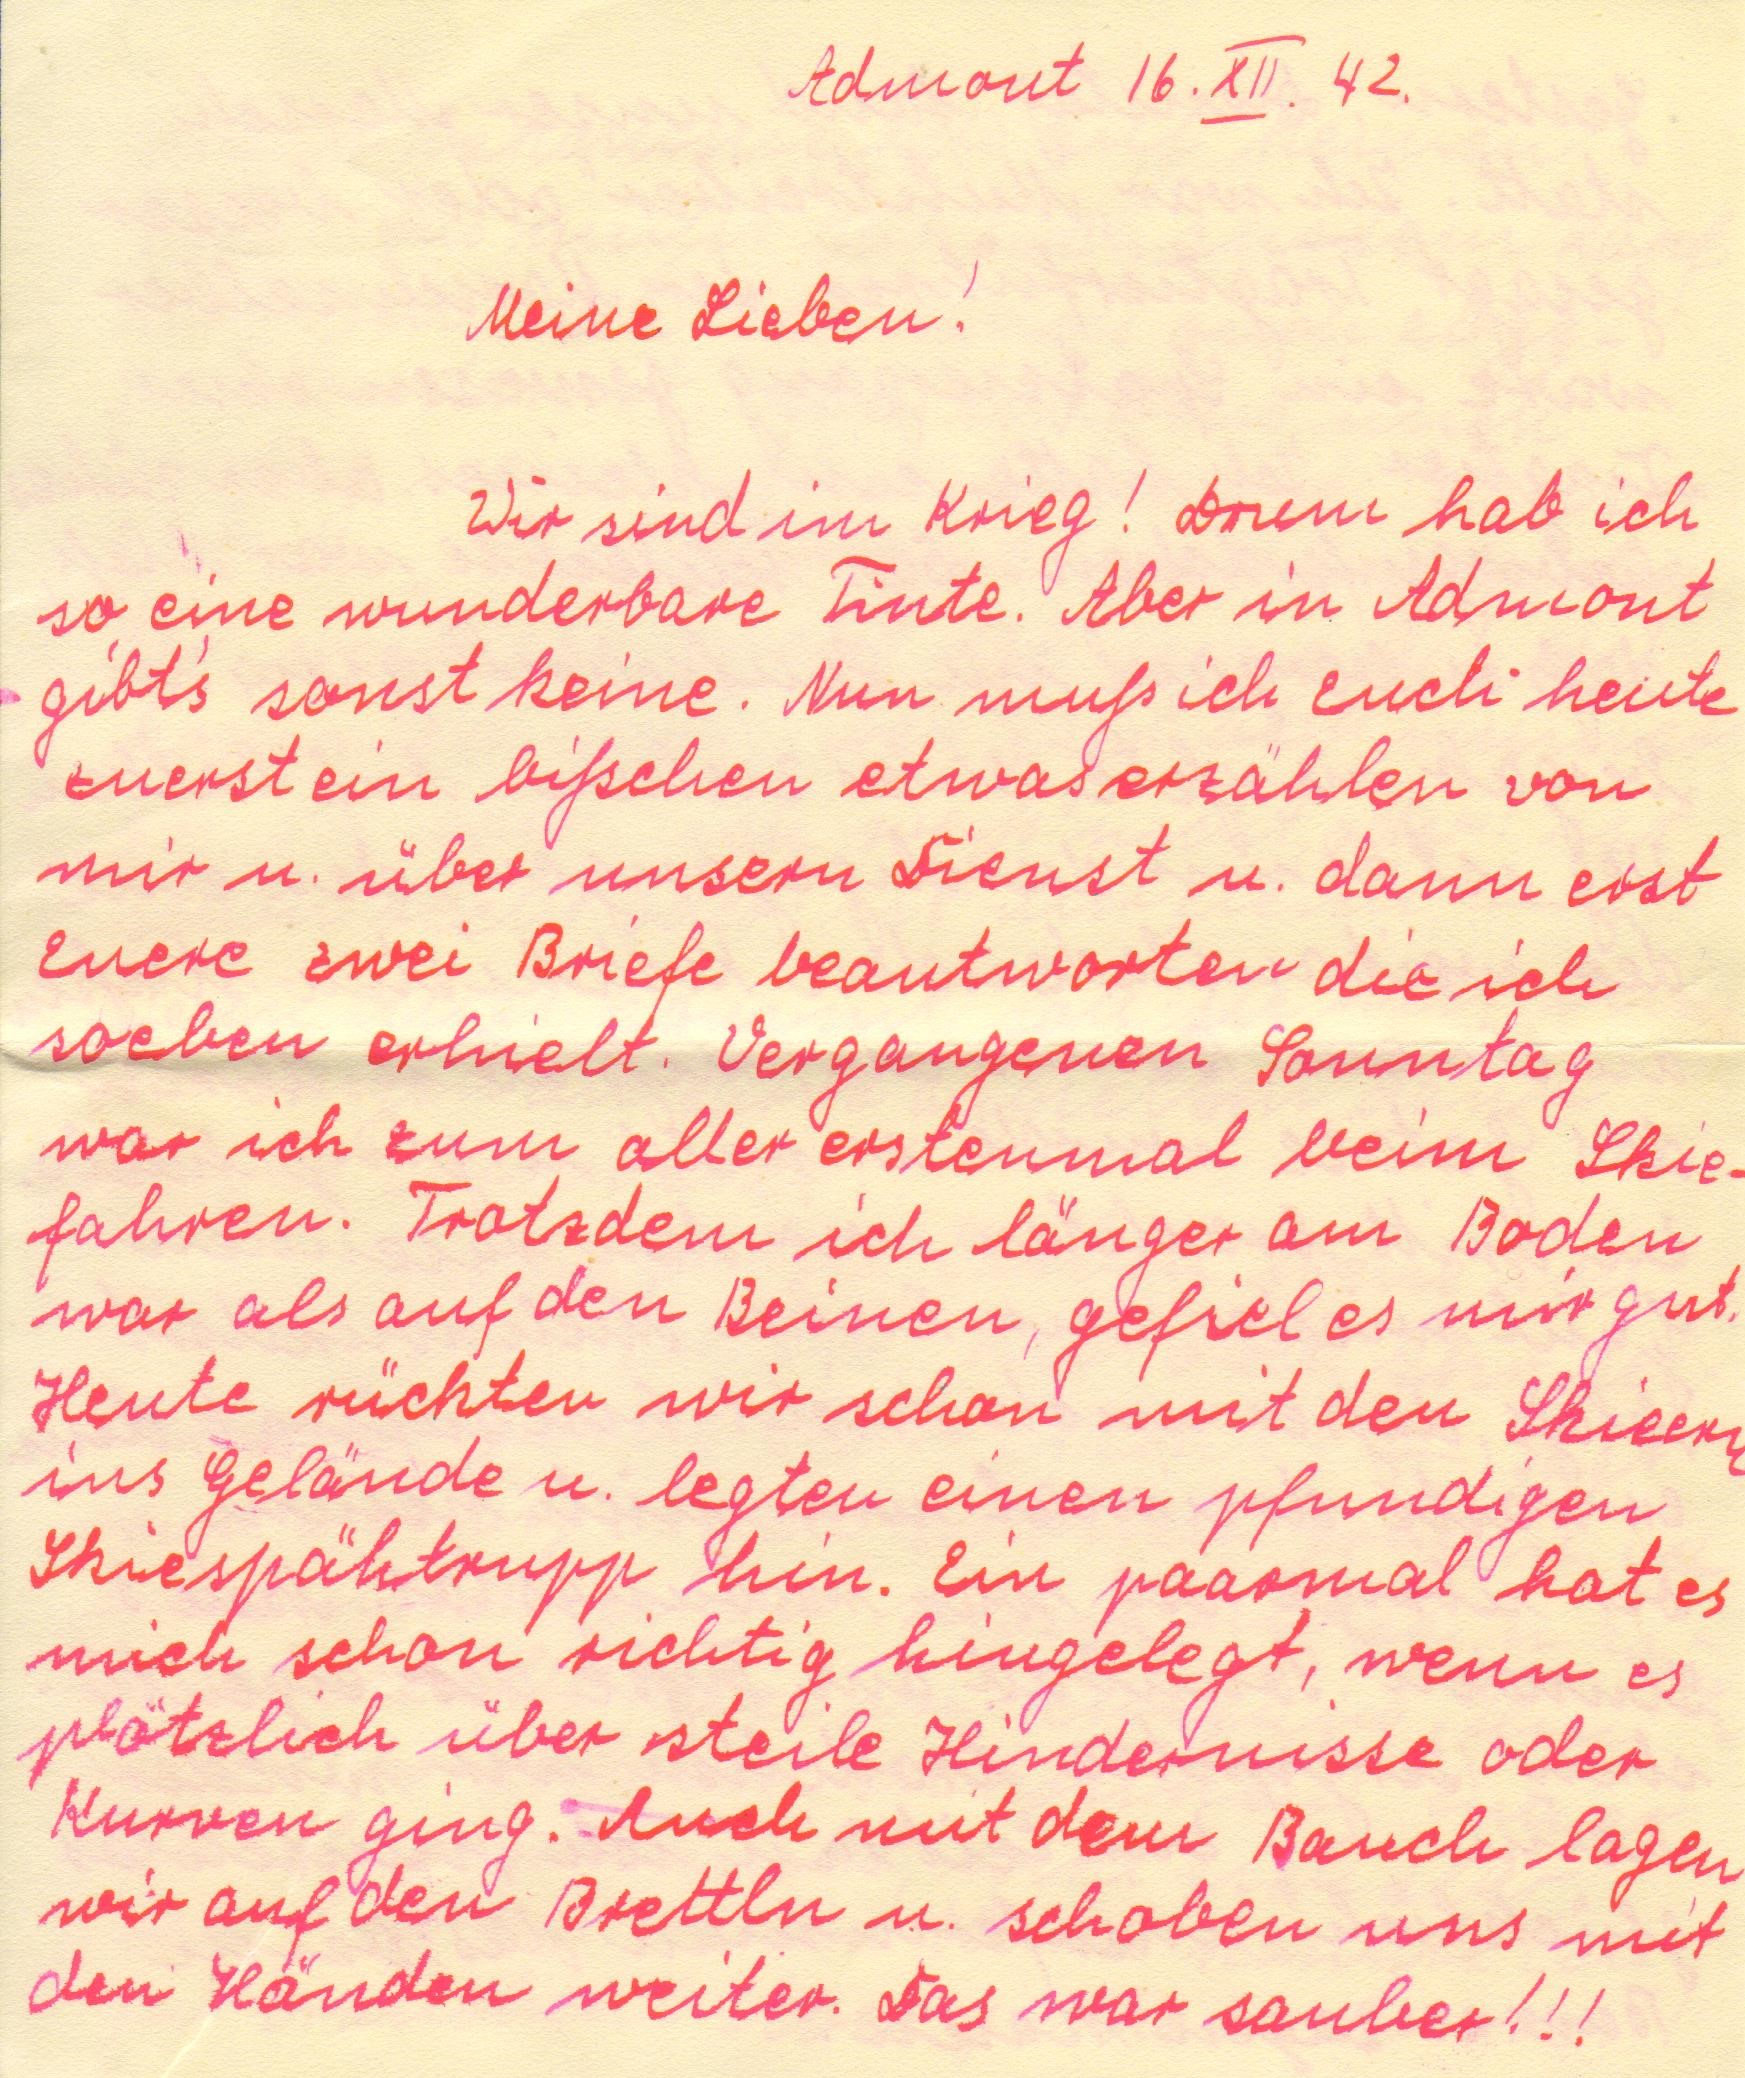 Admont 16. XII. 42.
Meine Lieben!
Wir sind im Krieg! Drum hab ich
so eine wunderbare Tinte. Aber in Admont
gibt's sonst keine. Nun muß ich Euch heute
zuerst ein bißchen etwas erzählen von
mir u. über unsern Dienst u. dann erst
Euere zwei Briefe beantworten die ich
soeben erhielt. Vergangenen Sonntag
war ich zum aller erstenmal beim Skie-
fahren. Trotzdem ich länger am Boden
war als auf den Beinen, gefiel es mir gut.
Heute rückten wir schon mit den Skieern
ins Gelände u. legten einen pfundigen
Skiespähtrupp hin. Ein paarmal hat es
mich schon richtig hingelegt, wenn es
plötzlich über steile Hindernisse oder
Kurven ging. Auch mit dem Bauch lagen
wir auf den Brettln u. schoben uns mit
den Händen weiter. Das war sauber!!!